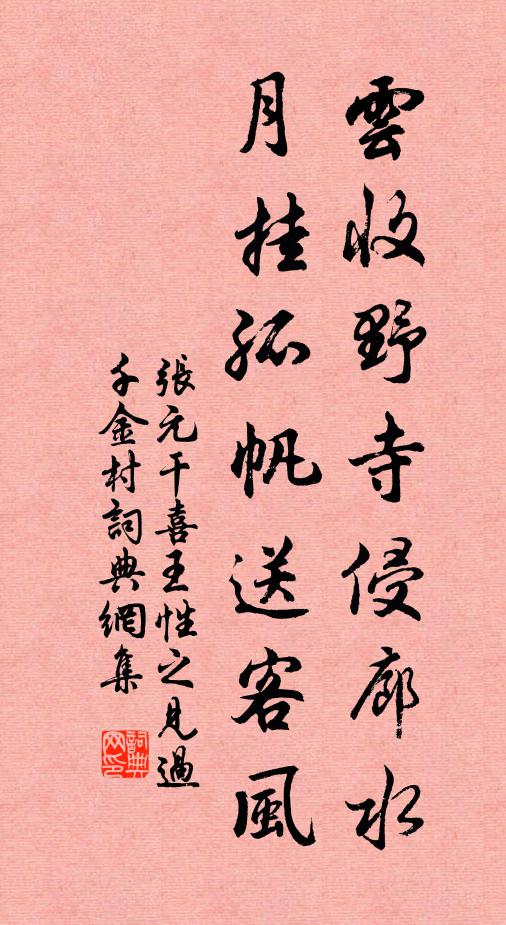 雲收野寺侵廊水
月挂孤帆送客風
張元干喜王性之見過
千金村詞典網集
詞典
网印